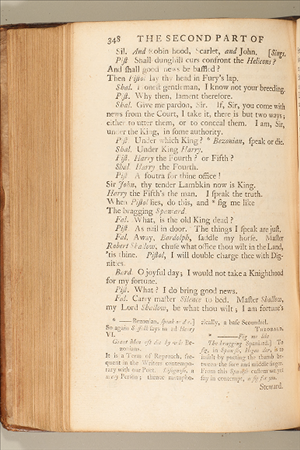 348 THE SECOND PART OF
Sil. And Robin hood, Scarlet, and John. [Sings.
Pist. Shall dunghill curs confront the Helicons?
And shall good news be baffled?
Then Pistol lay thy head in Fury's lap.
Shal. Honest gentleman, I know not your breeding.
Pist. Why then, lament therefore.
Shal. Give me pardon, Sir. If, Sir, you come with
news from the Court, I take it, there is but two ways;
either to utter them, or to conceal them. I am, Sir,
under the King, in some authority.
Pist. Under which King? * Bezonian, speak or die.
Shal. Under King Harry.
Pist. Harry the Fourth? or Fifth?
Shal. Harry the Fourth.
Pist. A foutra for thine office!
Sir John, thy tender Lambkin now is King.
Harry the Fifth's the man. I speak the truth.
When Pistol lies, do this, and * fig me like
The bragging Spaniard.
Fal. What, is the old King dead?
Pist. As nail in door. The things I speak are just.
Fal. Away, Bardolph, saddle my horse. Master
Robert Shallow, chuse what office thou wilt in the Land,
'tis thine. Pistol, I will double charge thee with Dig-
nities.
Bard. O joyful day; I would not take a Knighthood
for my fortune.
Pist. What? I do bring good news.
Fal. Carry master Silence to bed. Master Shallow,
my Lord Shallow, be what thou wilt; I am fortune's
* — Bezonian, speak or die.]
So again Suffolk says in 2d Henry
VI.
Great Men oft die by vile Be-
zonians.
It is a Term of Reproach, fre-
quent in the Writers contempo-
rary with our Poet. Bisognoso, a
needy Person; thence metapho-
rically, a base Scoundrel.
THEOBALD.
* ——— Fig me like
The bragging Spaniard.] To
fig, in Spanish, Higas dar, is to
insult by putting the thumb be-
tween the fore and middle finger.
From this Spanish custom we yet
say in contempt, a fig for you.
Steward.